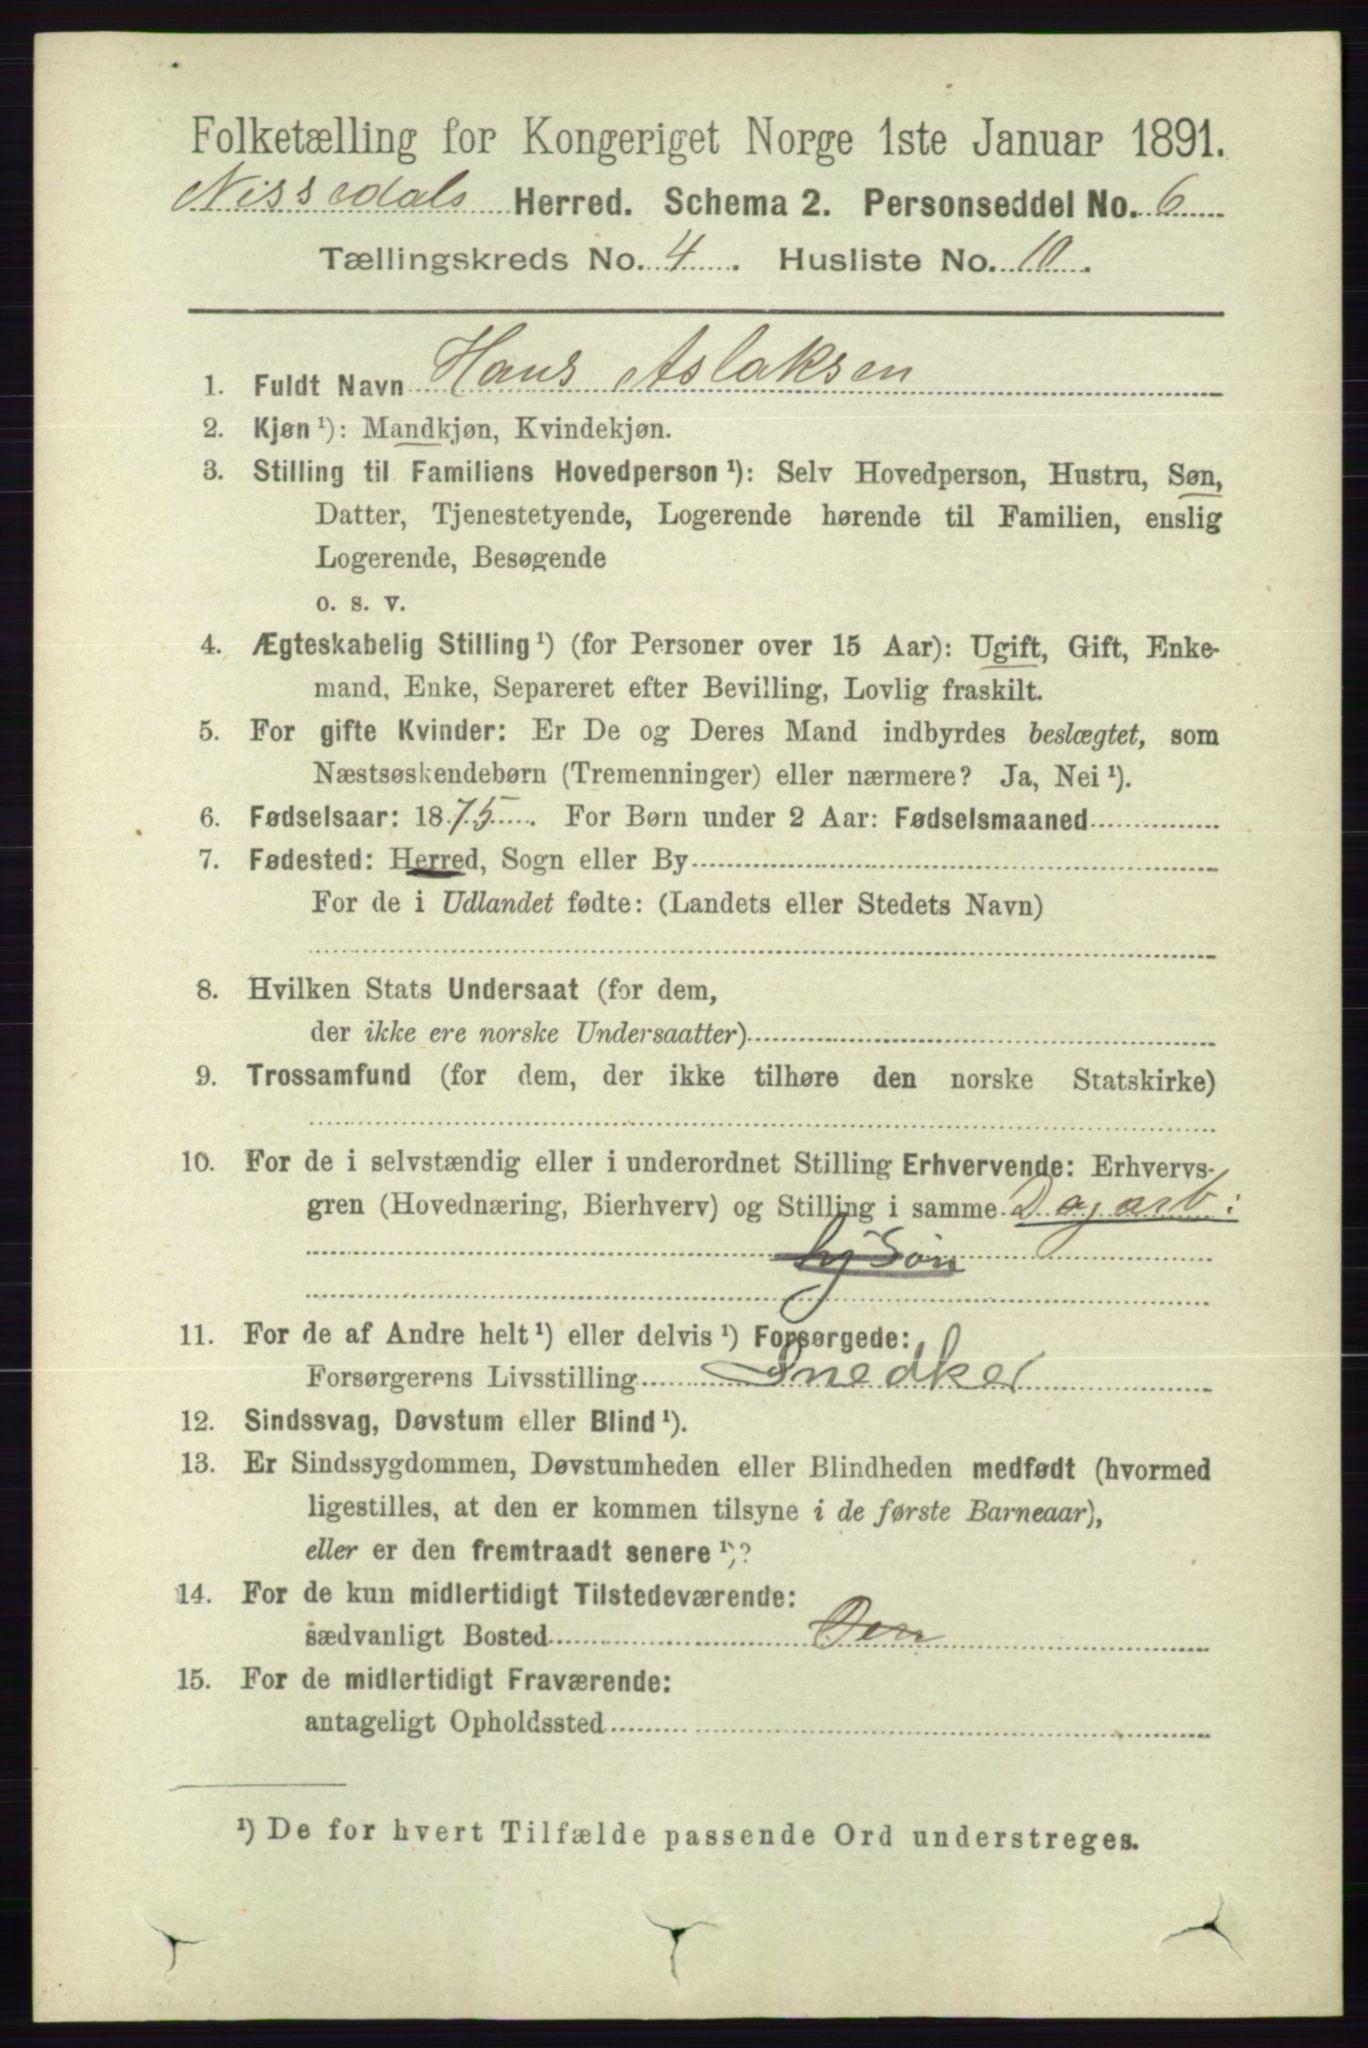 Folketælling for Kongeriget Norge 1ste Januar 1891.
Nissedals Herred. Schema 2. Personseddel No. 6
Tællingskreds No. 4. Husliste No. 10.
1. Fuldt Navn Hans Aslaksen
2. Kjøn ¹): Mandkjøn, Kvindekjøn.
3. Stilling til Familiens Hovedperson ¹): Selv Hovedperson, Hustru, Søn,
Datter, Tjenestetyende, Logerende hørende til Familien, enslig
Logerende, Besøgende
o. s. v.
4. Ægteskabelig Stilling ¹) (for Personer over 15 Aar): Ugift, Gift, Enke-
mand, Enke, Separeret efter Bevilling, Lovlig fraskilt.
5. For gifte Kvinder: Er De og Deres Mand indbyrdes beslægtet, som
Næstsøskendebørn (Tremenninger) eller nærmere? Ja, Nei ¹).
6. Fødselsaar: 1875. For Børn under 2 Aar: Fødselsmaaned
7. Fødested: Herred, Sogn eller By
For de i Udlandet fødte: (Landets eller Stedets Navn)
8. Hvilken Stats Undersaat (for dem,
der ikke ere norske Undersaatter)
9. Trossamfund (for dem, der ikke tilhøre den norske Statskirke)
10. For de i selvstændig eller i underordnet Stilling Erhvervende: Erhvervs-
gren (Hovednæring, Bierhverv) og Stilling i samme Dagarb:
Søn
11. For de af Andre helt ¹) eller delvis ¹) Forsørgede:
Forsørgerens Livsstilling Snedker
12. Sindssvag, Døvstum eller Blind ¹).
13. Er Sindssygdommen, Døvstumheden eller Blindheden medfødt (hvormed
ligestilles, at den er kommen tilsyne i de første Barneaar),
eller er den fremtraadt senere ¹)?
14. For de kun midlertidigt Tilstedeværende:
sædvanligt Bosted
15. For de midlertidigt Fraværende:
antageligt Opholdssted
¹) De for hvert Tilfælde passende Ord understreges.